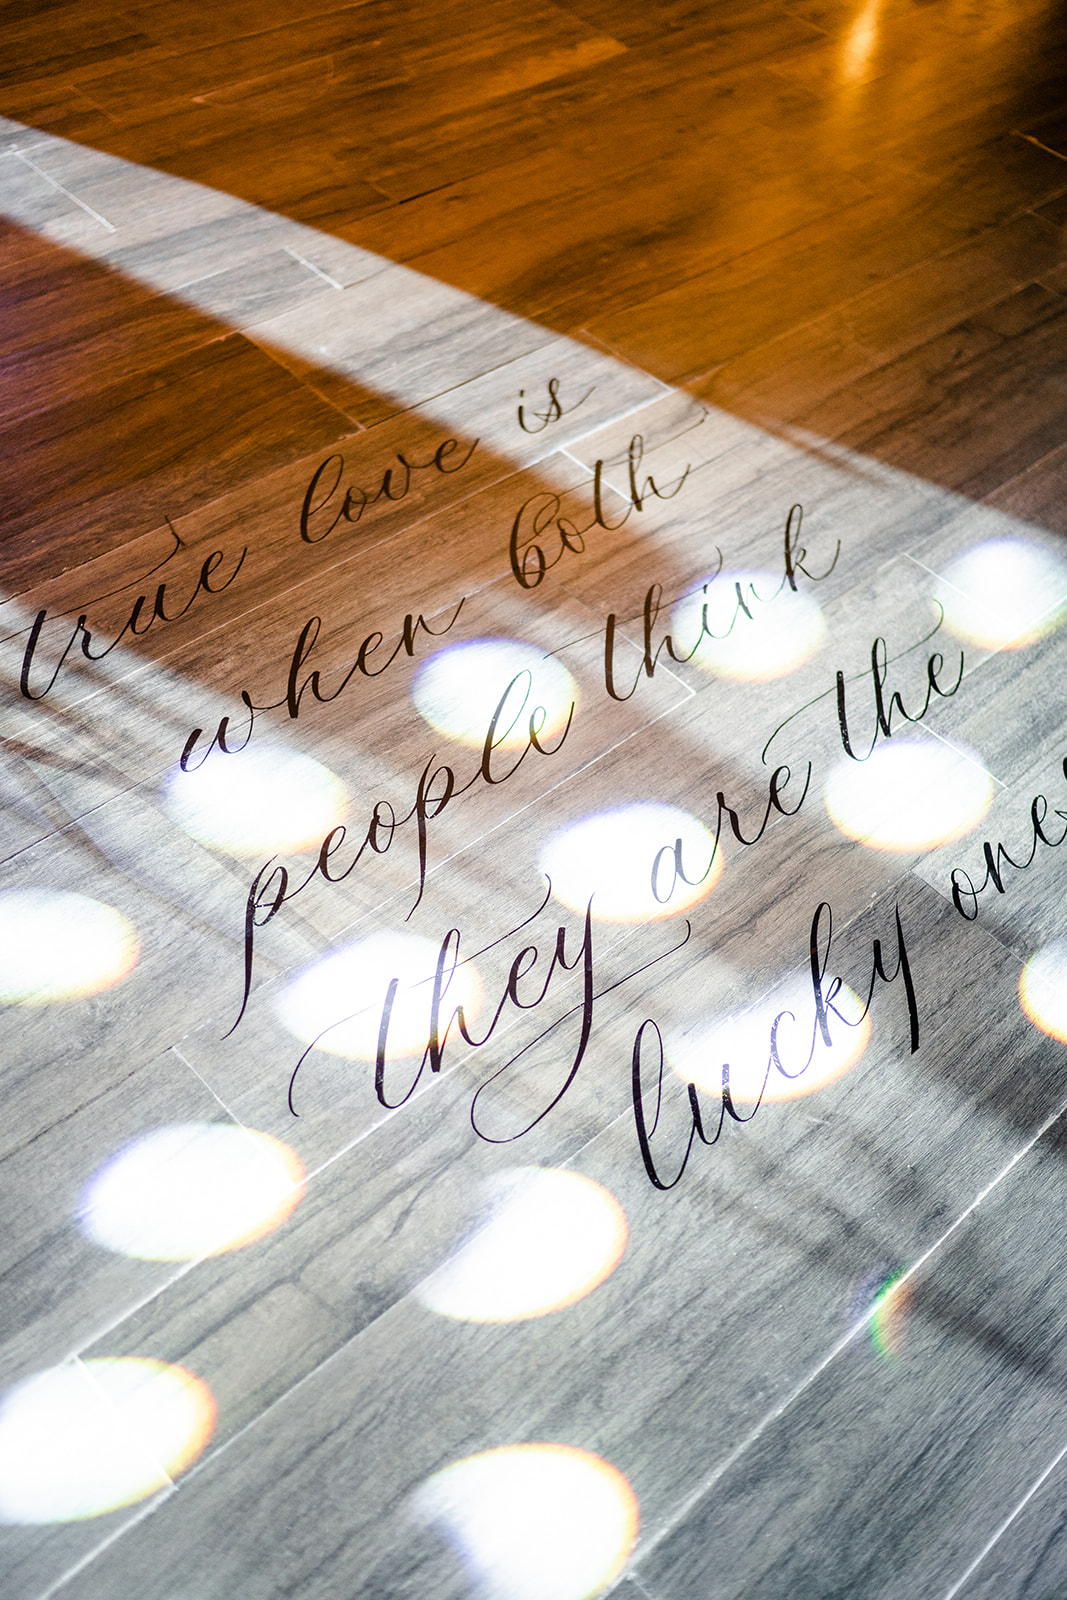 true love is
when both
people think
they are the
lucky ones